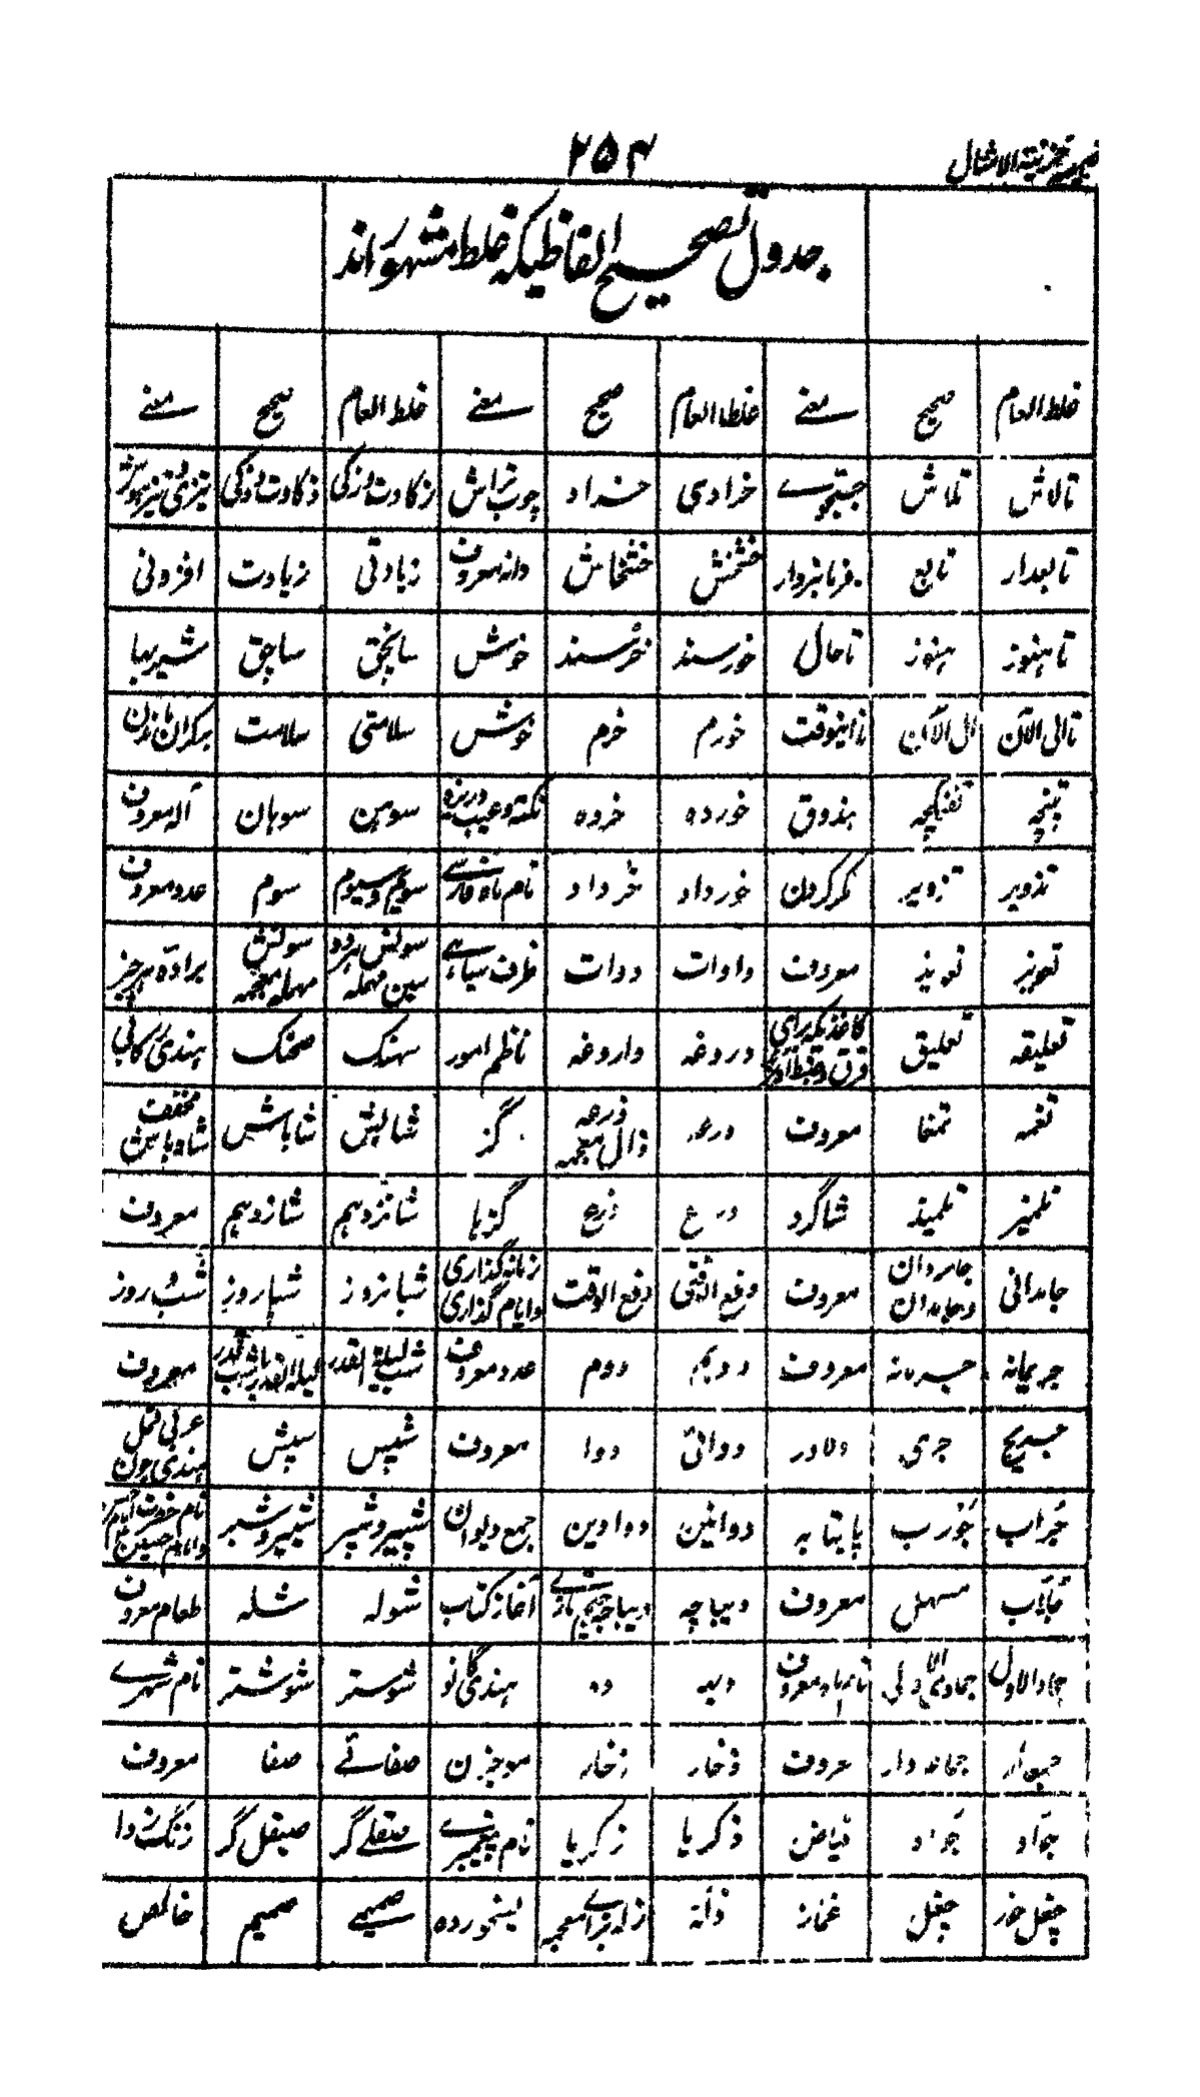 ضمیمه خزینة الامثال
۲۵۴
جدول تصحیح الفاظیکه غلط مشهور اند
غلط العام صحیح معنے غلط العام صحیح معنے غلط العام صحیح معنے
تالاش تلاش جستجوے خرادی خراد چوب تراش زکاوت وزکی ذکاوت وذکی تیزی و تیز هوش
تابعدار تابع فرمانبردار خشخش خشخاش دانه معروف زیادتی زیادت افزونی
تاهنوز هنوز تاحال خورسند خرسند خوش سانچق ساچق شیربها
تا الی الآن الی الآن تا اینوقت خورم خرم خوش سلامتی سلامت
تپنچه تفنگچه بندوق خورده خرده نکته و عیب و ریزه سوہن سوہان آله معروف
تذویر تزویر مکر کردن خورداد خرداد نام ماه فارسے سویم و سیوم سوم عدد معروف
تعویز تعویذ معروف داوات دوات ظرف سیاہے سولنش ہردو سین مہملہ سولنش مہملہ معجمہ برادہ ہر چیز
تعلیقہ تعلیق کاغذیکہ برای دروغہ داروغہ ناظم امور سہنک صحنک ہندی رکابی
تغمہ تمغا معروف درعہ ذرعہ ذال معجمہ گز شابش شاباش مخفف شاد باش
تلمیز تلمیذ شاگرد درع ذرع گزہا شانزدہم شازدہم معروف
جامدانی جامہ دان و جامدان معروف دفع الوقتی دفع الوقت زمانہ گذاری و ایام گذاری شبانروز شباروز شب و روز
جریمانہ جرمانہ معروف دویم دوم عدد معروف شب لیلة القدر لیلة القدر یا شب قدر معروف
جریح جری دلاور دوائی دوا معروف شپس سپش عربی قمل ہندی جون
جراب جورب پایتابہ دوانین دواوین جمع دیوان شپیر و شپر شبیر و شبر نام حضرت امام حسن و امام حسین
جلاب مسہل معروف دیباچہ دیباجہ جیم تازے آغاز کتاب شولہ شلہ طعام معروف
جماد الاول جمادی الاولی نام ماہ معروف دیہہ دہ ہندی گانو شوستر شوشتر نام شہرے
جمعدار جماعہ دار معروف ذخار زخار موجزن صفائے صفا معروف
جواد جواد فیاض ذکریا زکریا نام پیغمبرے صقلے گر صیقل گر زنگ زدا
چغل خور چغل غماز ذلہ زلہ بزاے معجمہ پسخوردہ صمیمے صمیم خالص